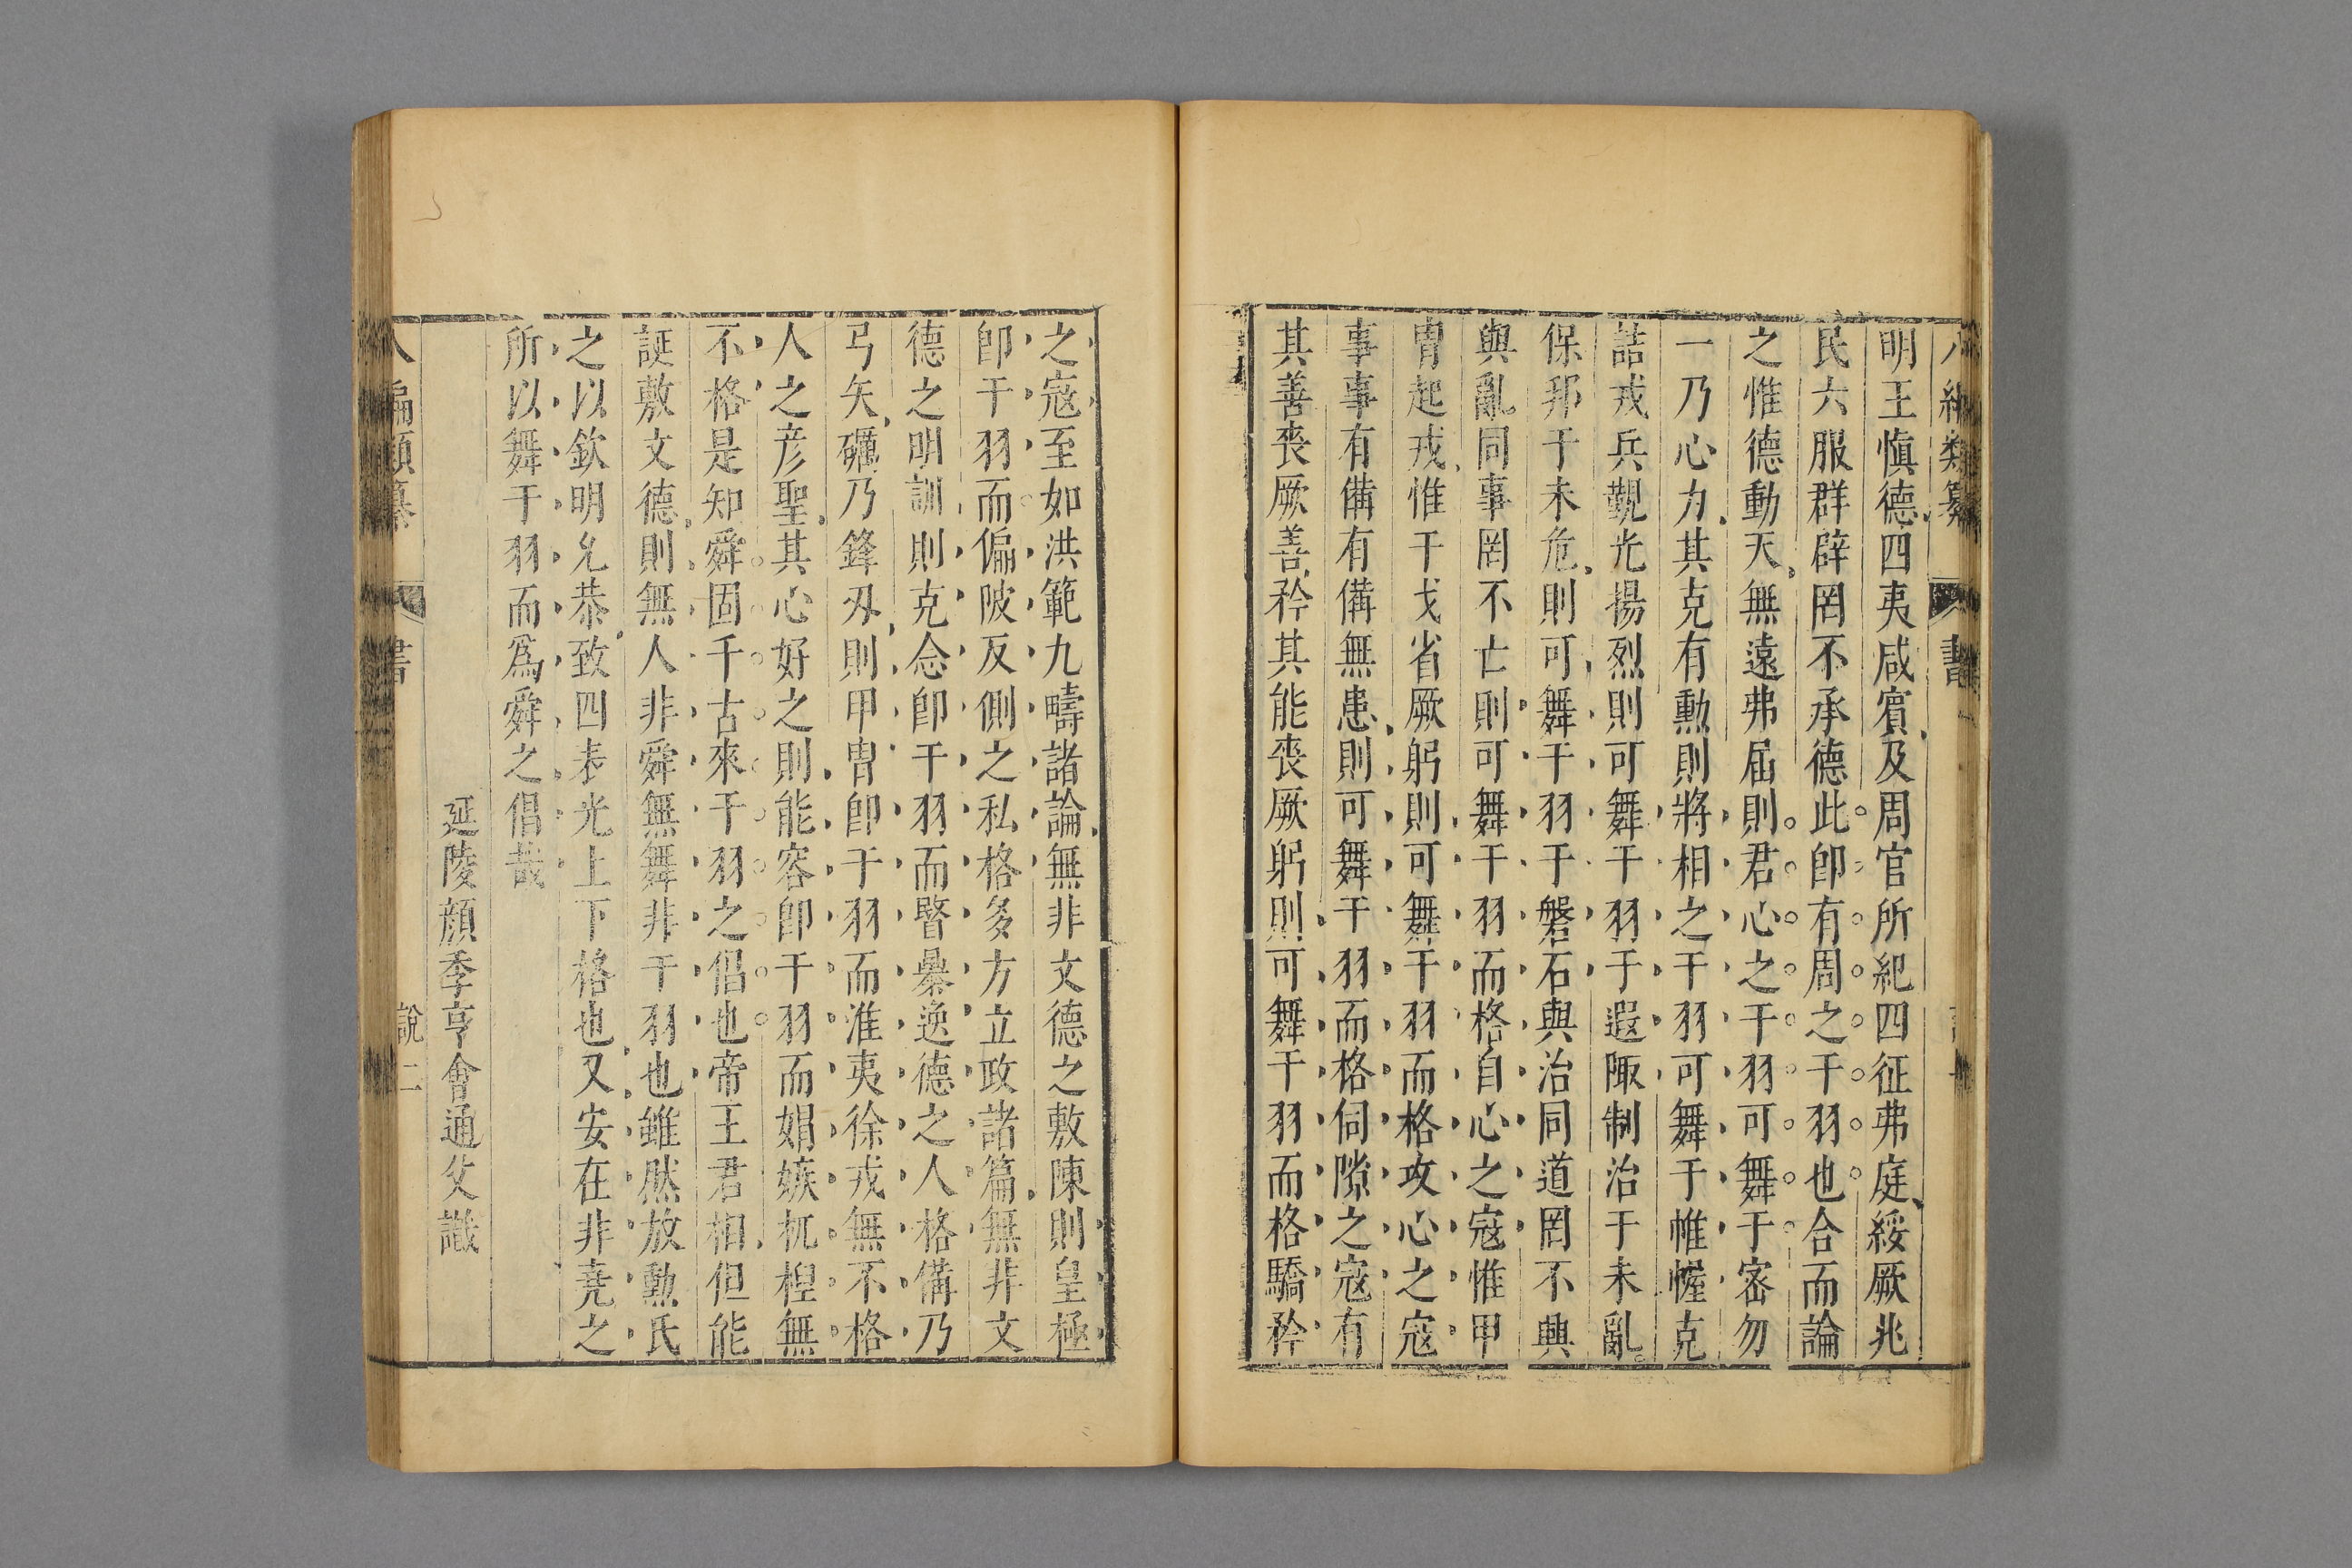 明王愼德四夷咸賓及周官所紀四征弗庭綏厥兆
民六服群辟罔不承德此卽有周之干羽也合而論
之惟德動天無遠弗屆則君心之干羽可舞于密勿
一乃心力其克有勳則將相之干羽可舞于帷幄克
詰戎兵覲光揚烈則可舞干羽于遐陬制治于未亂
保邦于未危則可舞干羽于磐石與治同道罔不興
與亂同事罔不亡則可舞干羽而格自心之寇惟甲
冑起戎惟干戈省厥躬則可舞干羽而格攻心之寇
事事有備有備無患則可舞干羽而格伺隙之寇有
其善喪厥善矜其能喪厥躬則可舞干羽而格驕矜
之寇至如洪範九疇諸論無非文德之敷陳則皇極
卽干羽而偏陂反側之私格多方立政諸篇無非文
德之明訓則克念卽干羽而暋㬥逸德之人格備乃
弓矢礪乃鋒刃則甲冑卽干羽而淮夷徐戎無不格
人之彦聖其心好之則能容卽干羽而娼嫉杌楻無
不格是知舜固千古來干羽之倡也帝王君相但能
誕敷文德則無人非舜無舞非干羽也雖然放勳氏
之以欽明允恭致四表光上下格也又安在非堯之
所以舞干羽而爲舜之倡哉
延陵顏季亨會通父識
八編類纂 書 說 二